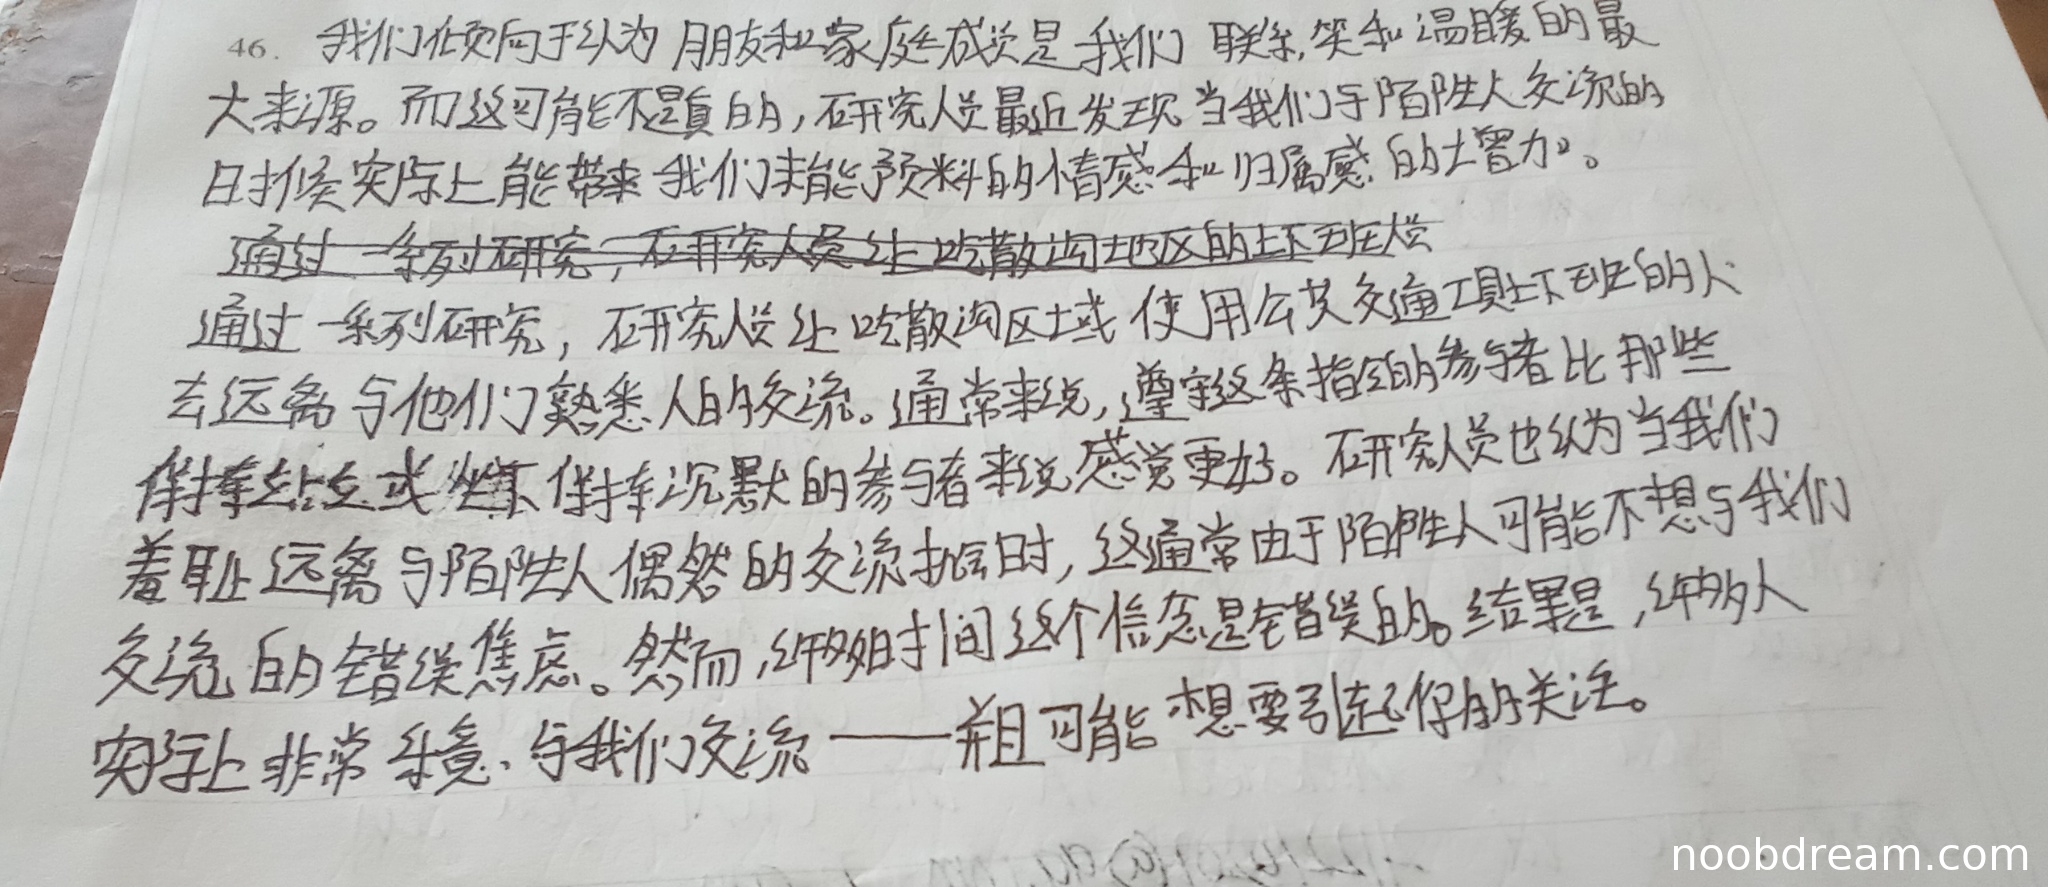 46. 我们倾向于认为朋友和家庭成员是我们联系,笑和温暖的最
大来源。而这可能不是真的,研究人员最近发现当我们与陌陌生人交流的
时候实际上能带来我们未能预料的情感和归属感的增加。
通过一系列研究,研究人员让吃散沟地区的上下班人员
通过一系列研究,研究人员让吃散沟区域使用公共交通工具上下班的人
去远离与他们熟悉人的交流。通常来说,遵守这条指令的参与者比那些
保持站立或 保持沉默的参与者来说感觉更好。研究人员也认为当我们
羞耻远离与陌生人偶然的交流机会时,这通常由于陌生人可能不想与我们
交流的错误焦虑。然而,许多时间这个信念是错误的。结果是,许多人
实际上非常乐意、与我们交流——并且可能想要引起你的关注。
noobdream.com